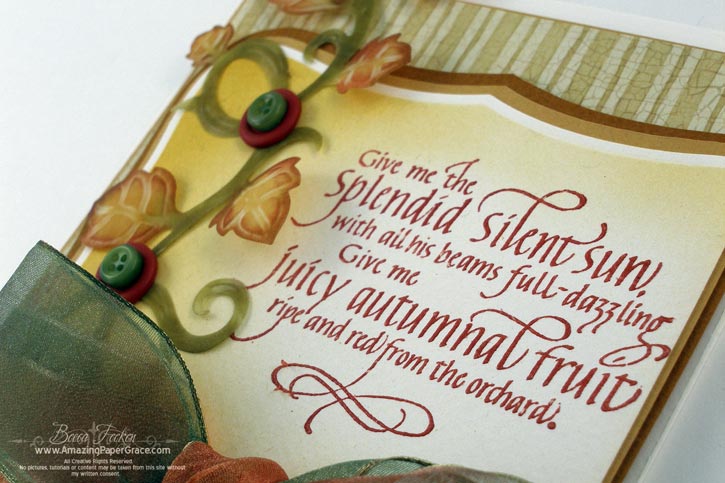 Give me the
splendid silent sun
with all his beams full-dazzling
Give me
juicy autumnal fruit
ripe and red from the orchard.
Becca Feeken
www.AmazingPaperGrace.com
All Creative Rights Reserved.
No pictures, tutorials or content may be taken from this site without
my written consent.